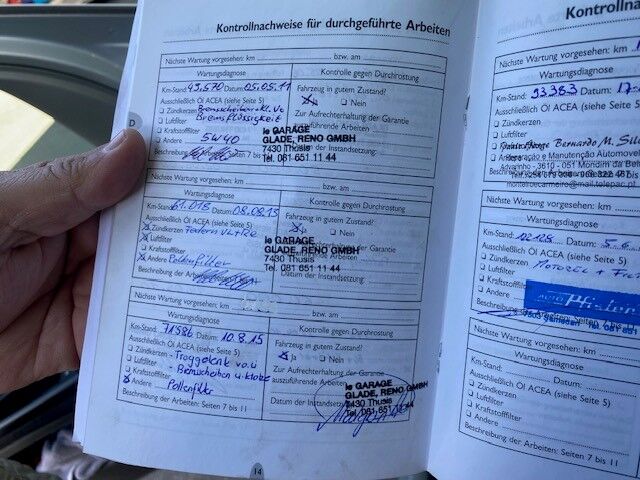 Kontrollnachweise für durchgeführte Arbeiten
Nächste Wartung vorgesehen: km bzw. am
Wartungsdiagnose Kontrolle gegen Durchrostung
Km-Stand: 45,570 Datum: 05.05.11 Fahrzeug in gutem Zustand?
Ausschließlich Öl ACEA (siehe Seite 5) Ja Nein
Zündkerzen Bremsscheiben + Kl. Vo
Luftfilter Bremsflüssigkeit Zur Aufrechterhaltung der Garantie
Kraftstofffilter auszuführende Arbeiten:
Andere 5W40 le GARAGE
GLADE, RENO GMBH
Beschreibung der Arbeiten: Seiten 7 bis 11 7430 Thusis
Tel. 081 651 11 44
D
Nächste Wartung vorgesehen: km bzw. am
Wartungsdiagnose Kontrolle gegen Durchrostung
Km-Stand: 61.015 Datum: 08.08.13 Fahrzeug in gutem Zustand?
Ausschließlich Öl ACEA (siehe Seite 5) Ja Nein
Zündkerzen Federn
Luftfilter Zur Aufrechterhaltung der Garantie
Kraftstofffilter le GARAGE
GLADE, RENO GMBH
Andere Pollenfilter 7430 Thusis
Beschreibung der Arbeiten Tel. 081 651 11 44
Datum der Instandsetzung:
Nächste Wartung vorgesehen: km bzw. am
Wartungsdiagnose Kontrolle gegen Durchrostung
Km-Stand: 71586 Datum: 10.8.15 Fahrzeug in gutem Zustand?
Ausschließlich Öl ACEA (siehe Seite 5) Ja Nein
Zündkerzen - Traggelenk vo.ü
Luftfilter - Bremscheiben u. klötze Zur Aufrechterhaltung der Garantie
Kraftstofffilter auszuführende Arbeiten:
Andere Pollenfilter le GARAGE
GLADE, RENO GMBH
Beschreibung der Arbeiten: Seiten 7 bis 11 Datum der Instandsetzung 7430 Thusis
Tel. 081 651 11 44
14
Kontrolln
Nächste Wartung vorgesehen: km
Wartungsdiagnose
Km-Stand: 93383 Datum: 17
Ausschließlich Öl ACEA (siehe Seite 5)
Zündkerzen
Luftfilter
Bernardo M. Sil
Reparação e Manutenção Automóvei
Advarinho - 3610 - 051 Mondim da Bei
monteirodecarneiro@mail.telepac.pt
Wartungsdiagnose
Km-Stand: Datum: 5.6
Ausschließlich Öl ACEA (siehe Seite 5)
Zündkerzen Motoröl +
Luftfilter
Kraftstofffilter
Andere AUTO Pfister
7503 Samedan Tel. 081
Nächste Wartung vorgesehen: km
Wartungsdiagnose
Km-Stand: Datum:
Ausschließlich Öl ACEA (siehe Seite 5)
Zündkerzen
Luftfilter
Kraftstofffilter
Andere
Beschreibung der Arbeiten: Seiten 7 bis 11